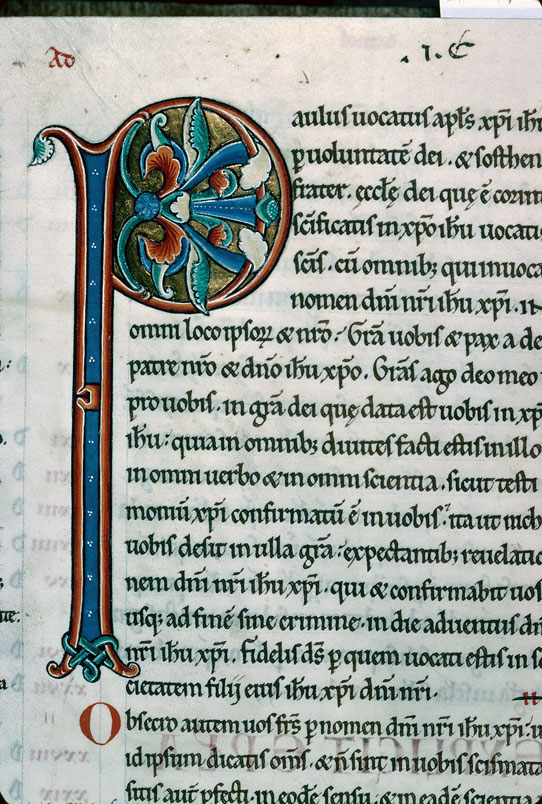 Ad .I.C
Paulus uocatus apłs xp̄i ih̄u
ꝑ uoluntatē dei . & sosthen
frater . ęccl̄ę dei quę ē corin
sc̄ificatis in xp̄o ih̄u uocatis
sc̄is . cū omnib; qui inuoca
nomen dn̄i nr̄i ih̄u xp̄i . in
omni loco ipsoꝝ & nr̄o . Gr̄a uobis & pax a de
patre nr̄o & dn̄o ih̄u xp̄o . Gr̄as ago deo meo
pro uobis . in gr̄a dei quę data est uobis in xp̄o
ih̄u : quia in omnib; diuites facti estis in illo
in omni uerbo & in omni scientia . sicut testi
moniū xp̄i confirmatū ē in uobis : ita ut nich
uobis desit in ulla gr̄a : expectantib; reuelatio
nem dn̄i nr̄i ih̄u xp̄i . qui & confirmabit uos
usq; ad finē sine crimine . in die aduentus dn̄i
nr̄i ih̄u xp̄i . Fidelis ds̄ ꝑ quem uocati estis in so
cietatem filij eius ih̄u xp̄i dn̄i nr̄i .
Obsecro autem uos fr̄s ꝑ nomen dn̄i nr̄i ih̄u xp̄i : u
id ipsum dicatis om̄s . & n̄ sint in uobis scismata
sitis aut̄ ꝑfecti . in eodē sensu . & in eadē scientia